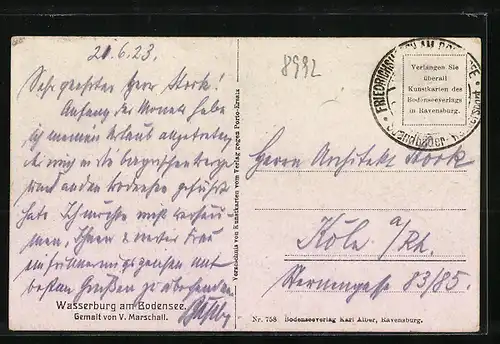 21.6.23.
Sehr geehrter Herr Stork!
Anfang des Monats habe
ich meinen Urlaub angetreten
mich in die
und an den Bodensee geführt
hat. Ich möchte nicht versäu-
men, Ihnen & werter Frau
ein Erinnerungszeichen mit
besten Grüßen zu übersenden.
Wasserburg am Bodensee.
Gemalt von V. Marschall.
Verzeichnis von Kunstkarten vom Verlag gegen Porto-Ersatz
8992
FRIEDRICHSHAFEN AM BODENSEE
Verlangen Sie
überall
Kunstkarten des
Bodenseeverlags
in Ravensburg.
Herrn Architekt Stork
Köln a/Rh.
Sternengasse 83/85.
Nr. 758 Bodenseeverlag Karl Alber, Ravensburg.